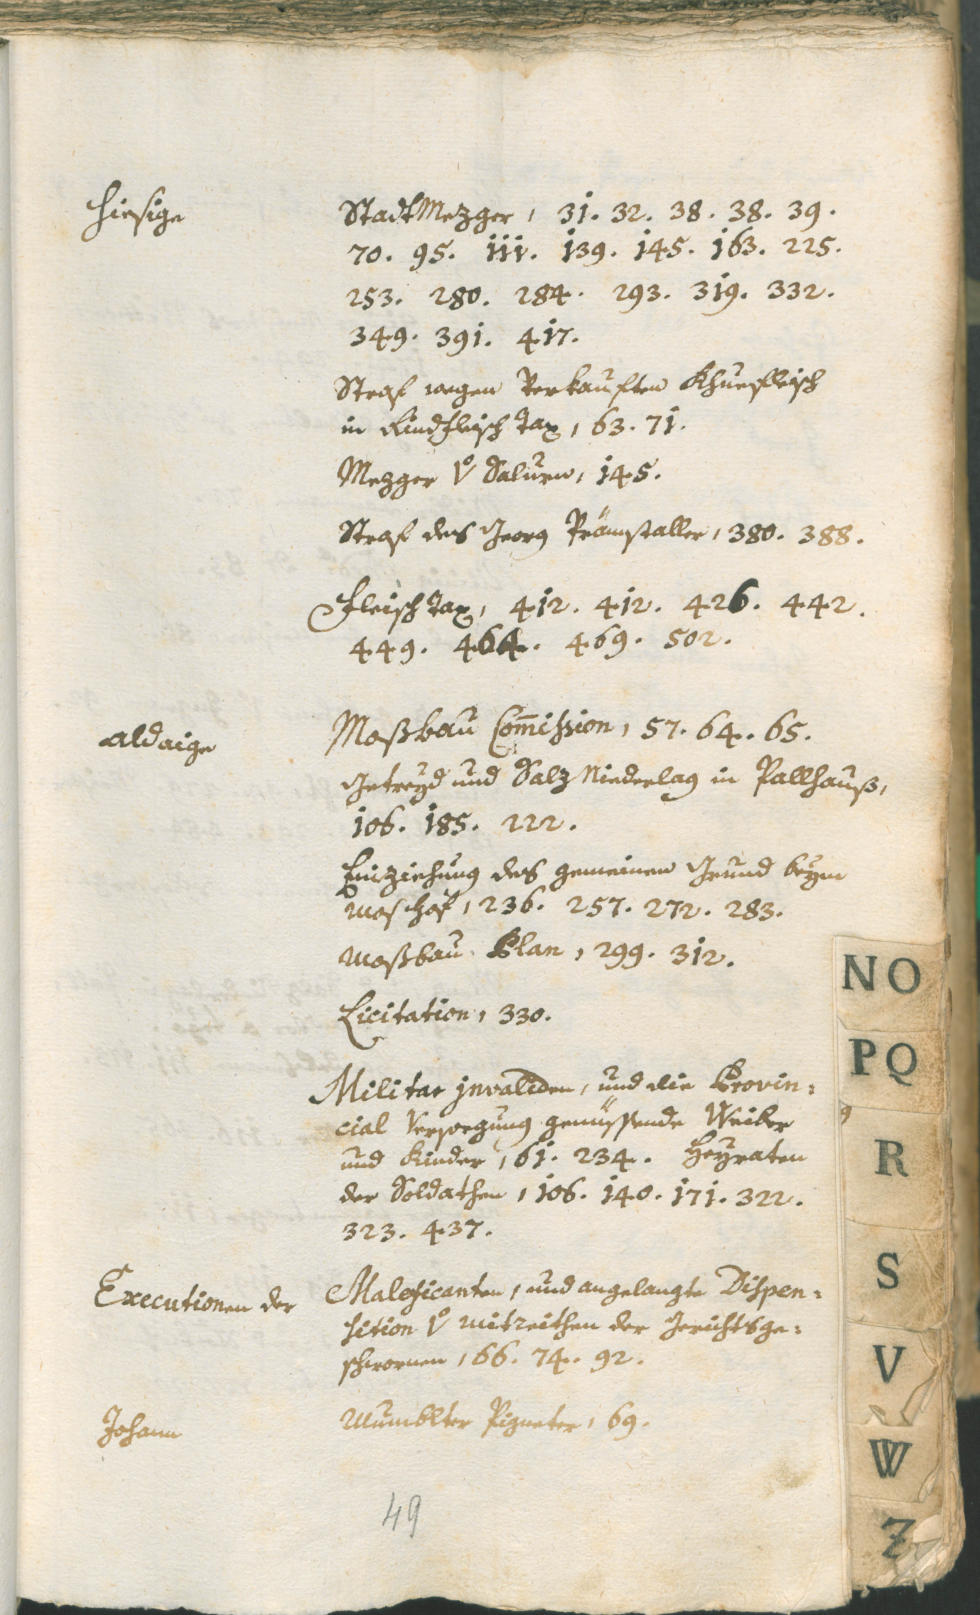 hiesige StadtMezger, 31. 32. 38. 38. 39.
70. 95. 111. 139. 145. 163. 225.
253. 280. 284. 293. 319. 332.
349. 391. 417.
Straf wegen Verkauften Khuefleisch
in Rindfleisch Tax, 63. 71.
Mezger Vo Salurn, 145.
Straf des Georg Prämstaller, 380. 388.
Fleisch Tax, 412. 412. 426. 442.
449. 464. 469. 502.
aldaige Moßbau Com̄ission, 57. 64. 65.
Getreyd und Salz Niederlag in Pallhauß,
106. 185. 222.
Einziehung des gemeinen Grund beym
Moshof, 236. 257. 272. 283.
Moßbau Plan, 299. 312.
Licitation, 330.
Militar invaliden, und die Provin:
cial Versorgung genüssende Weiber
und Kinder, 61. 234. Heyraten
der Soldathen, 106. 140. 171. 322.
323. 437.
Executionen der Maleficanten, und angelangte Dispen:
sition Vo mitreithen der Gerichtsge:
schwornen, 66. 74. 92.
Johann Mumblter Pigneter, 69.
49
NO
PQ
R
S
V
W
Z